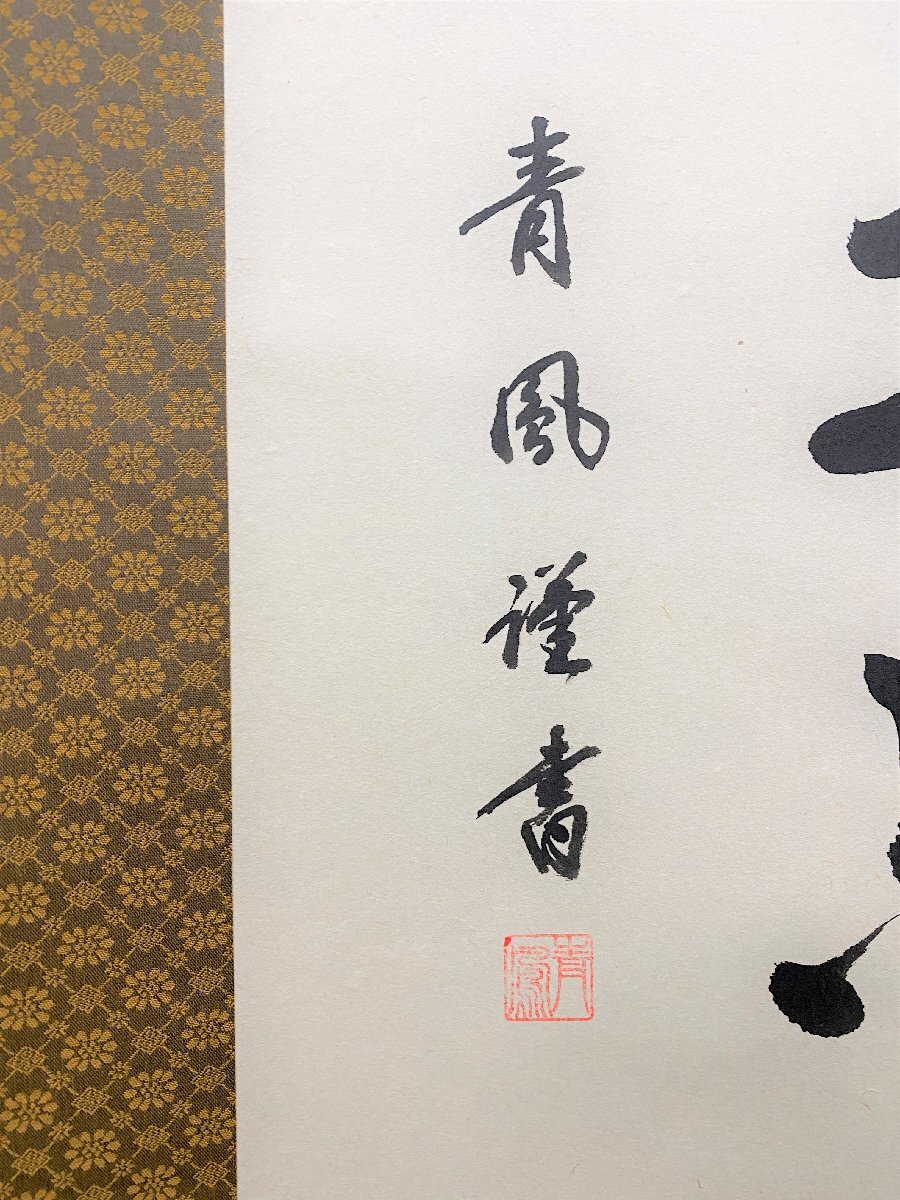 青風謹書
青風